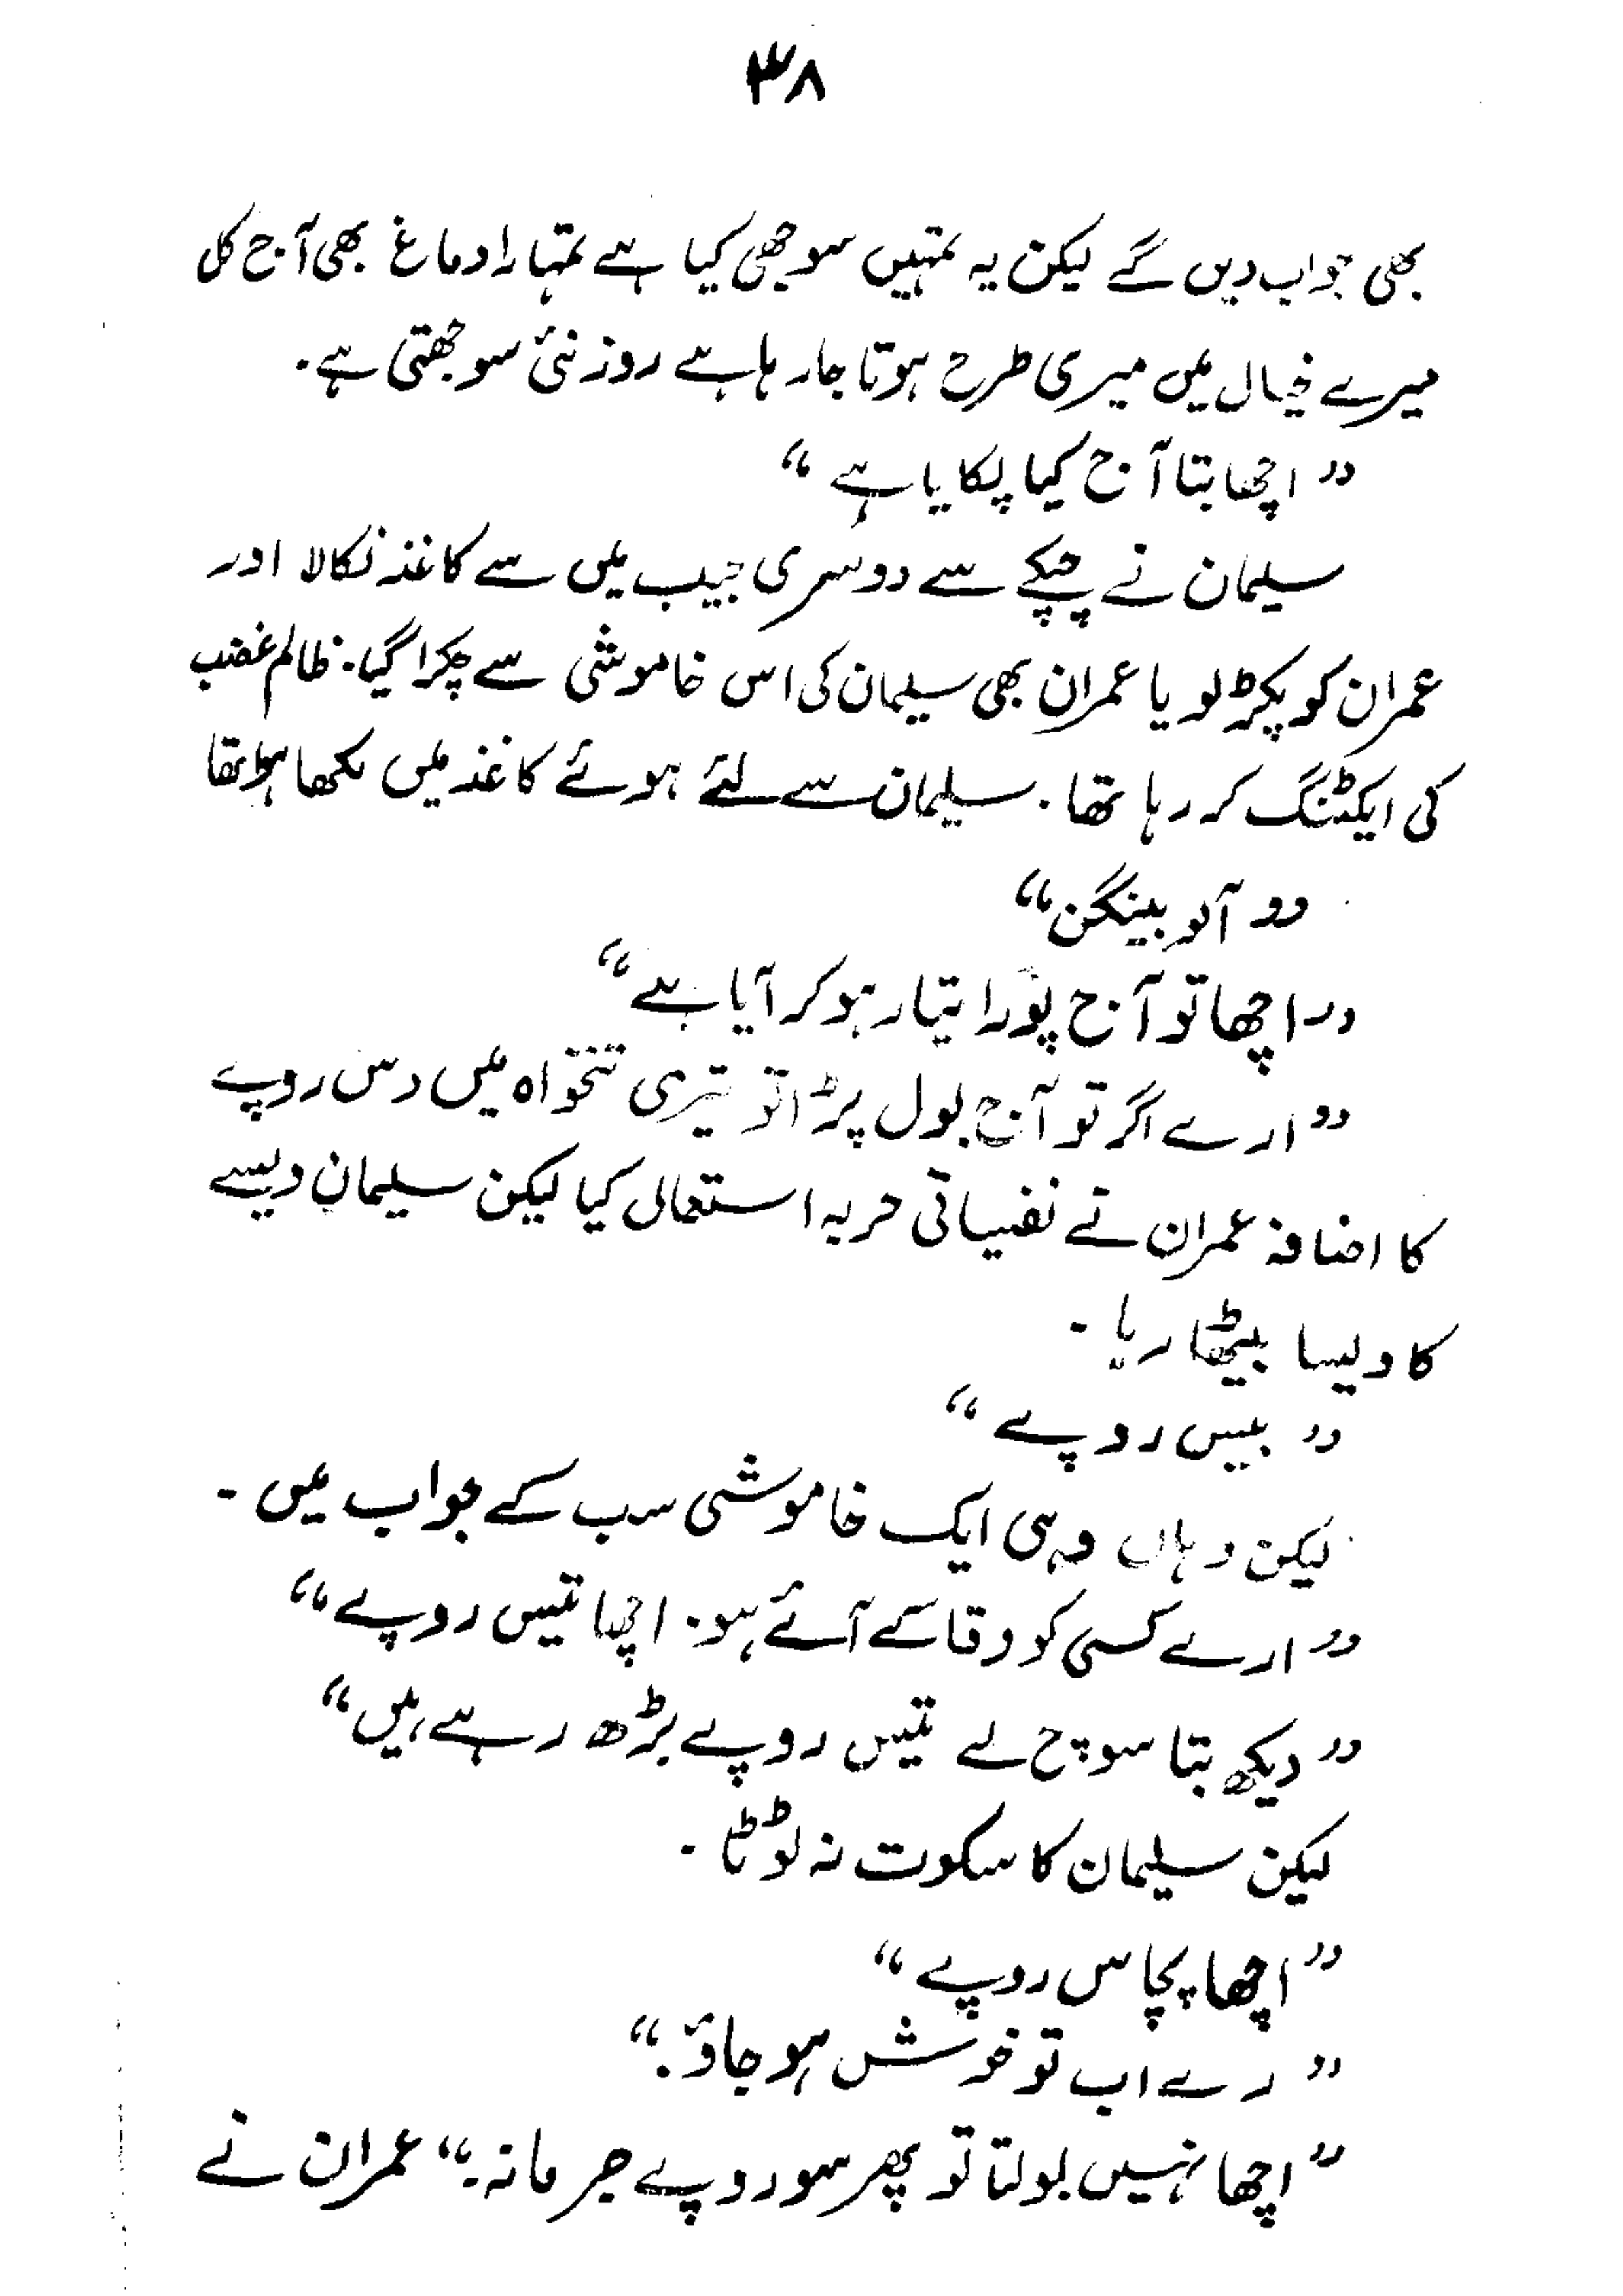 ۳۸
بھی جواب دیں گے لیکن یہ تمہیں سوجھی کیا ہے تمہارا دماغ بھی آج کل
میرے خیال میں میری طرح ہوتا جا رہا ہے روز نئی سوجھتی ہے۔
”اچھا بتا آج کیا پکایا ہے“
سلیمان نے چپکے سے دوسری جیب میں سے کاغذ نکالا اور
عمران کو پکڑ لو یا عمران بھی سلیمان کی اس خاموشی سے چکرا گیا۔ ظالم غضب
کی ایکٹنگ کر رہا تھا۔ سلیمان سے لئے ہوئے کاغذ میں لکھا ہوا تھا
”آلو بینگن“
”اچھا تو آج پورا تیار ہو کر آیا ہے“
”ارے اگر تو آج بول پڑا تو تیری تنخواہ میں دس روپے
کا اضافہ عمران نے نفسیاتی حربہ استعمال کیا لیکن سلیمان ویسے
کا ویسا بیٹھا رہا۔
”بیس روپے“
لیکن وہاں وہی ایک خاموشی سب کے جواب میں۔
”ارے کسی کو وفا کے آئے ہو۔ اچھا تیس روپے“
”دیکھ بتا سوچ لے تیس روپے بڑھ رہے ہیں“
لیکن سلیمان کا سکوت نہ ٹوٹا۔
”اچھا پچاس روپے“
”رے اب تو خوش ہو جاؤ۔“
”اچھا نہیں بولتا تو پھر سو روپے جرمانہ۔“ عمران نے